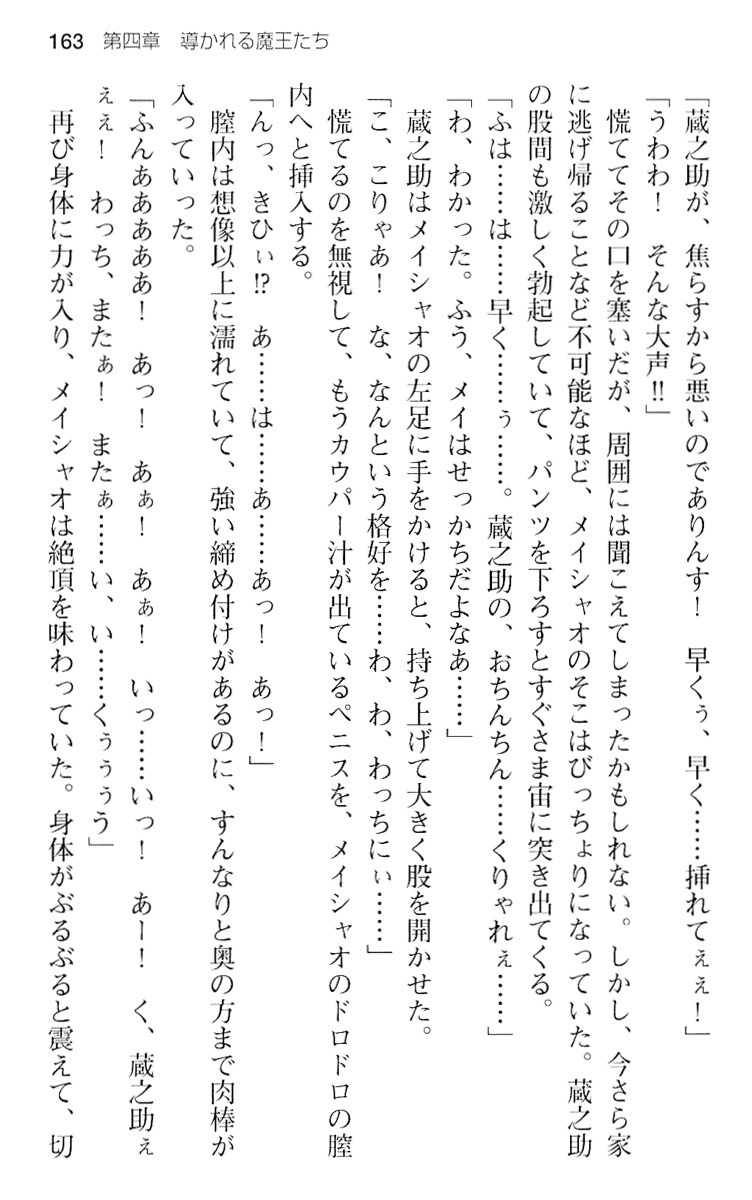 163 第四章 導かれる魔王たち
「蔵之助が、焦らすから悪いのでありんす！ 早くぅ、早く……挿れてぇぇ！」
「うわわ！ そんな大声‼」
慌ててその口を塞いだが、周囲には聞こえてしまったかもしれない。しかし、今さら家
に逃げ帰ることなど不可能なほど、メイシャオのそこはびっちょりになっていた。蔵之助
の股間も激しく勃起していて、パンツを下ろすとすぐさま宙に突き出てくる。
「ふは……は……早く……ぅ……。蔵之助の、おちんちん……くりゃれぇ……」
「わ、わかった。ふう、メイはせっかちだよなぁ……」
蔵之助はメイシャオの左足に手をかけると、持ち上げて大きく股を開かせた。
「こ、こりゃあ！ な、なんという格好を……わ、わ、わっちにぃ……」
慌てるのを無視して、もうカウパー汁が出ているペニスを、メイシャオのドロドロの膣
内へと挿入する。
「んっ、きひぃ⁉ あ……は……あ……あっ！ あっ！」
膣内は想像以上に濡れていて、強い締め付けがあるのに、すんなりと奥の方まで肉棒が
入っていった。
「ふんぁぁぁぁぁ！ あっ！ あぁ！ あぁ！ いっ……いっ！ あー！ く、蔵之助ぇ
ぇぇ！ わっち、またぁ！ またぁ……い、い……くぅぅぅう」
再び身体に力が入り、メイシャオは絶頂を味わっていた。身体がぶるぶると震えて、切